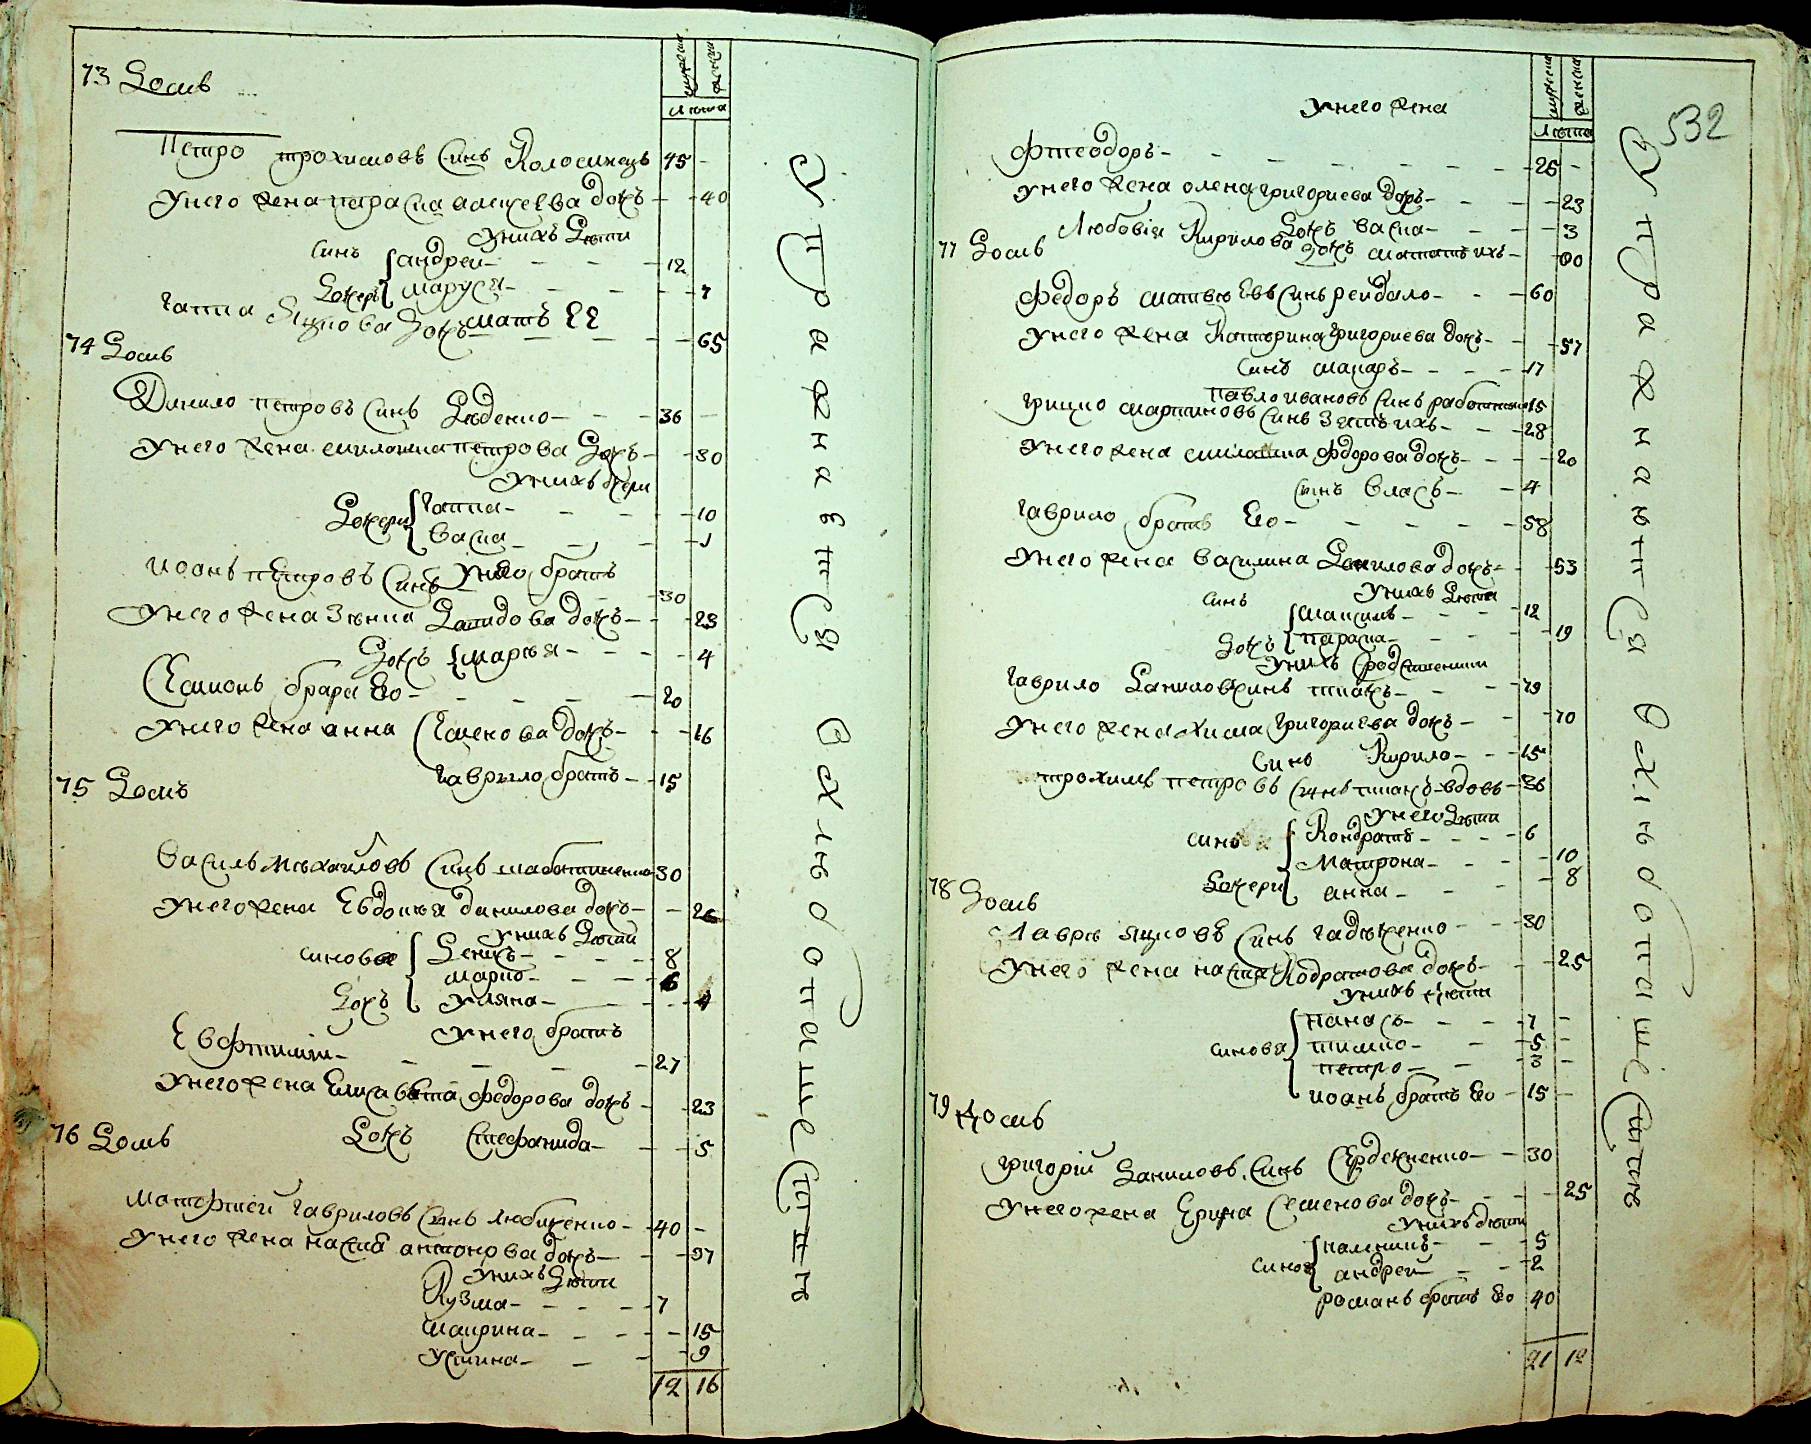 73 Домъ
мужеска
женска
Лѣта
Петро трохимовъ Синъ Колосинецъ 45 -
Унего жена параска алексѣева дочъ - 40
Унихъ Дѣти
Синъ андрей - 12
Дочеръ маруся - 7
Гапка Яцкова дочъ матъ ЕЕ - 65
74 Домъ
Данило петровъ Синъ - 36 -
Унего жена петрова Дочъ - 30
Унихъ дочери
Дочери Гапка - 10
Васка - 1
иоанъ пЕтровъ Синъ Унего братъ - 30
Унего жена Зѣнка Давидова дочъ - 23
Дочъ маръя - 4
Семионъ братъ Его - 20
Унего жена анна Семенова дочъ - 16
Гаврило братъ - 15
75 Домъ
Василъ Михайловъ Синъ 30
Унего жена Евдокъя данилова дочъ - 26
Унихъ Дѣти
Синовъя Денисъ - 8
марко - 6
Дочъ Уляна - 4
Унего братъ
Евфтимии - 27
Унего жена Елисавета федорова дочъ - 23
76 Домъ
Дочъ Стефанида - 5
Матфией Гавриловъ Синъ Любченко - 40 -
Унего жена настя антонова дочъ - 37
Унихъ Дѣти
Кузма - 7
Маирина - 15
Устина - 9
12 16
Упражнаются Вхлѣбопашестъвѣ
532
Унего жена
мужеска
женска
Лѣта
Фтеодоръ - 25 -
Унего жена олена григориева дочъ - 23
Дочъ васка - 3
77 Домъ
Любовія Кирилова дочъ мататъ ихъ - 80
Федоръ матвеЕвъ Синъ рейдало - 60
Унего жена Катърина Григориева дочъ - 57
Синъ макаръ - 17
павло ивановъ Синъ работникъ 15
Грицко мартиновъ Синъ Зятъ ихъ - 28
Унего жена федорова дочъ - 20
Синъ Власъ - 4
Гаврило братъ Его - 58
Унего жена Василина Данилова дочъ - 53
Унихъ Дѣти
Синъ Максимъ - 12
Дочъ параска - 19
Унихъ Сродственники
Гаврило Даниловъ Синъ ткачъ - 79
Унего жена Хима Григориева дочъ - 70
Синъ Кирило - 15
трохимъ петровъ Синъ ткачъ вдовъ - 36
Унего Дѣти
Синовъя Кондратъ - 6
Матрона - 10
Дочери анна - 8
78 Домъ
Лавръ яцковъ Синъ гадюченко - 30
Унего жена настя Кодратова дочъ - 25
Унихъ дѣти
Синовя панасъ - 7 -
тимко - 5 -
петро - 3 -
иоанъ братъ Его - 15 -
79 Домъ
григорій Даниловъ Синъ Сердюченко - 30
Унего жена Ерина Семенова дочъ - 25
Унихъ дѣти
Синовя 5
андрей - 2
романъ братъ Его 40
21 12
Упражнаются Вхлѣбопашестъвѣ